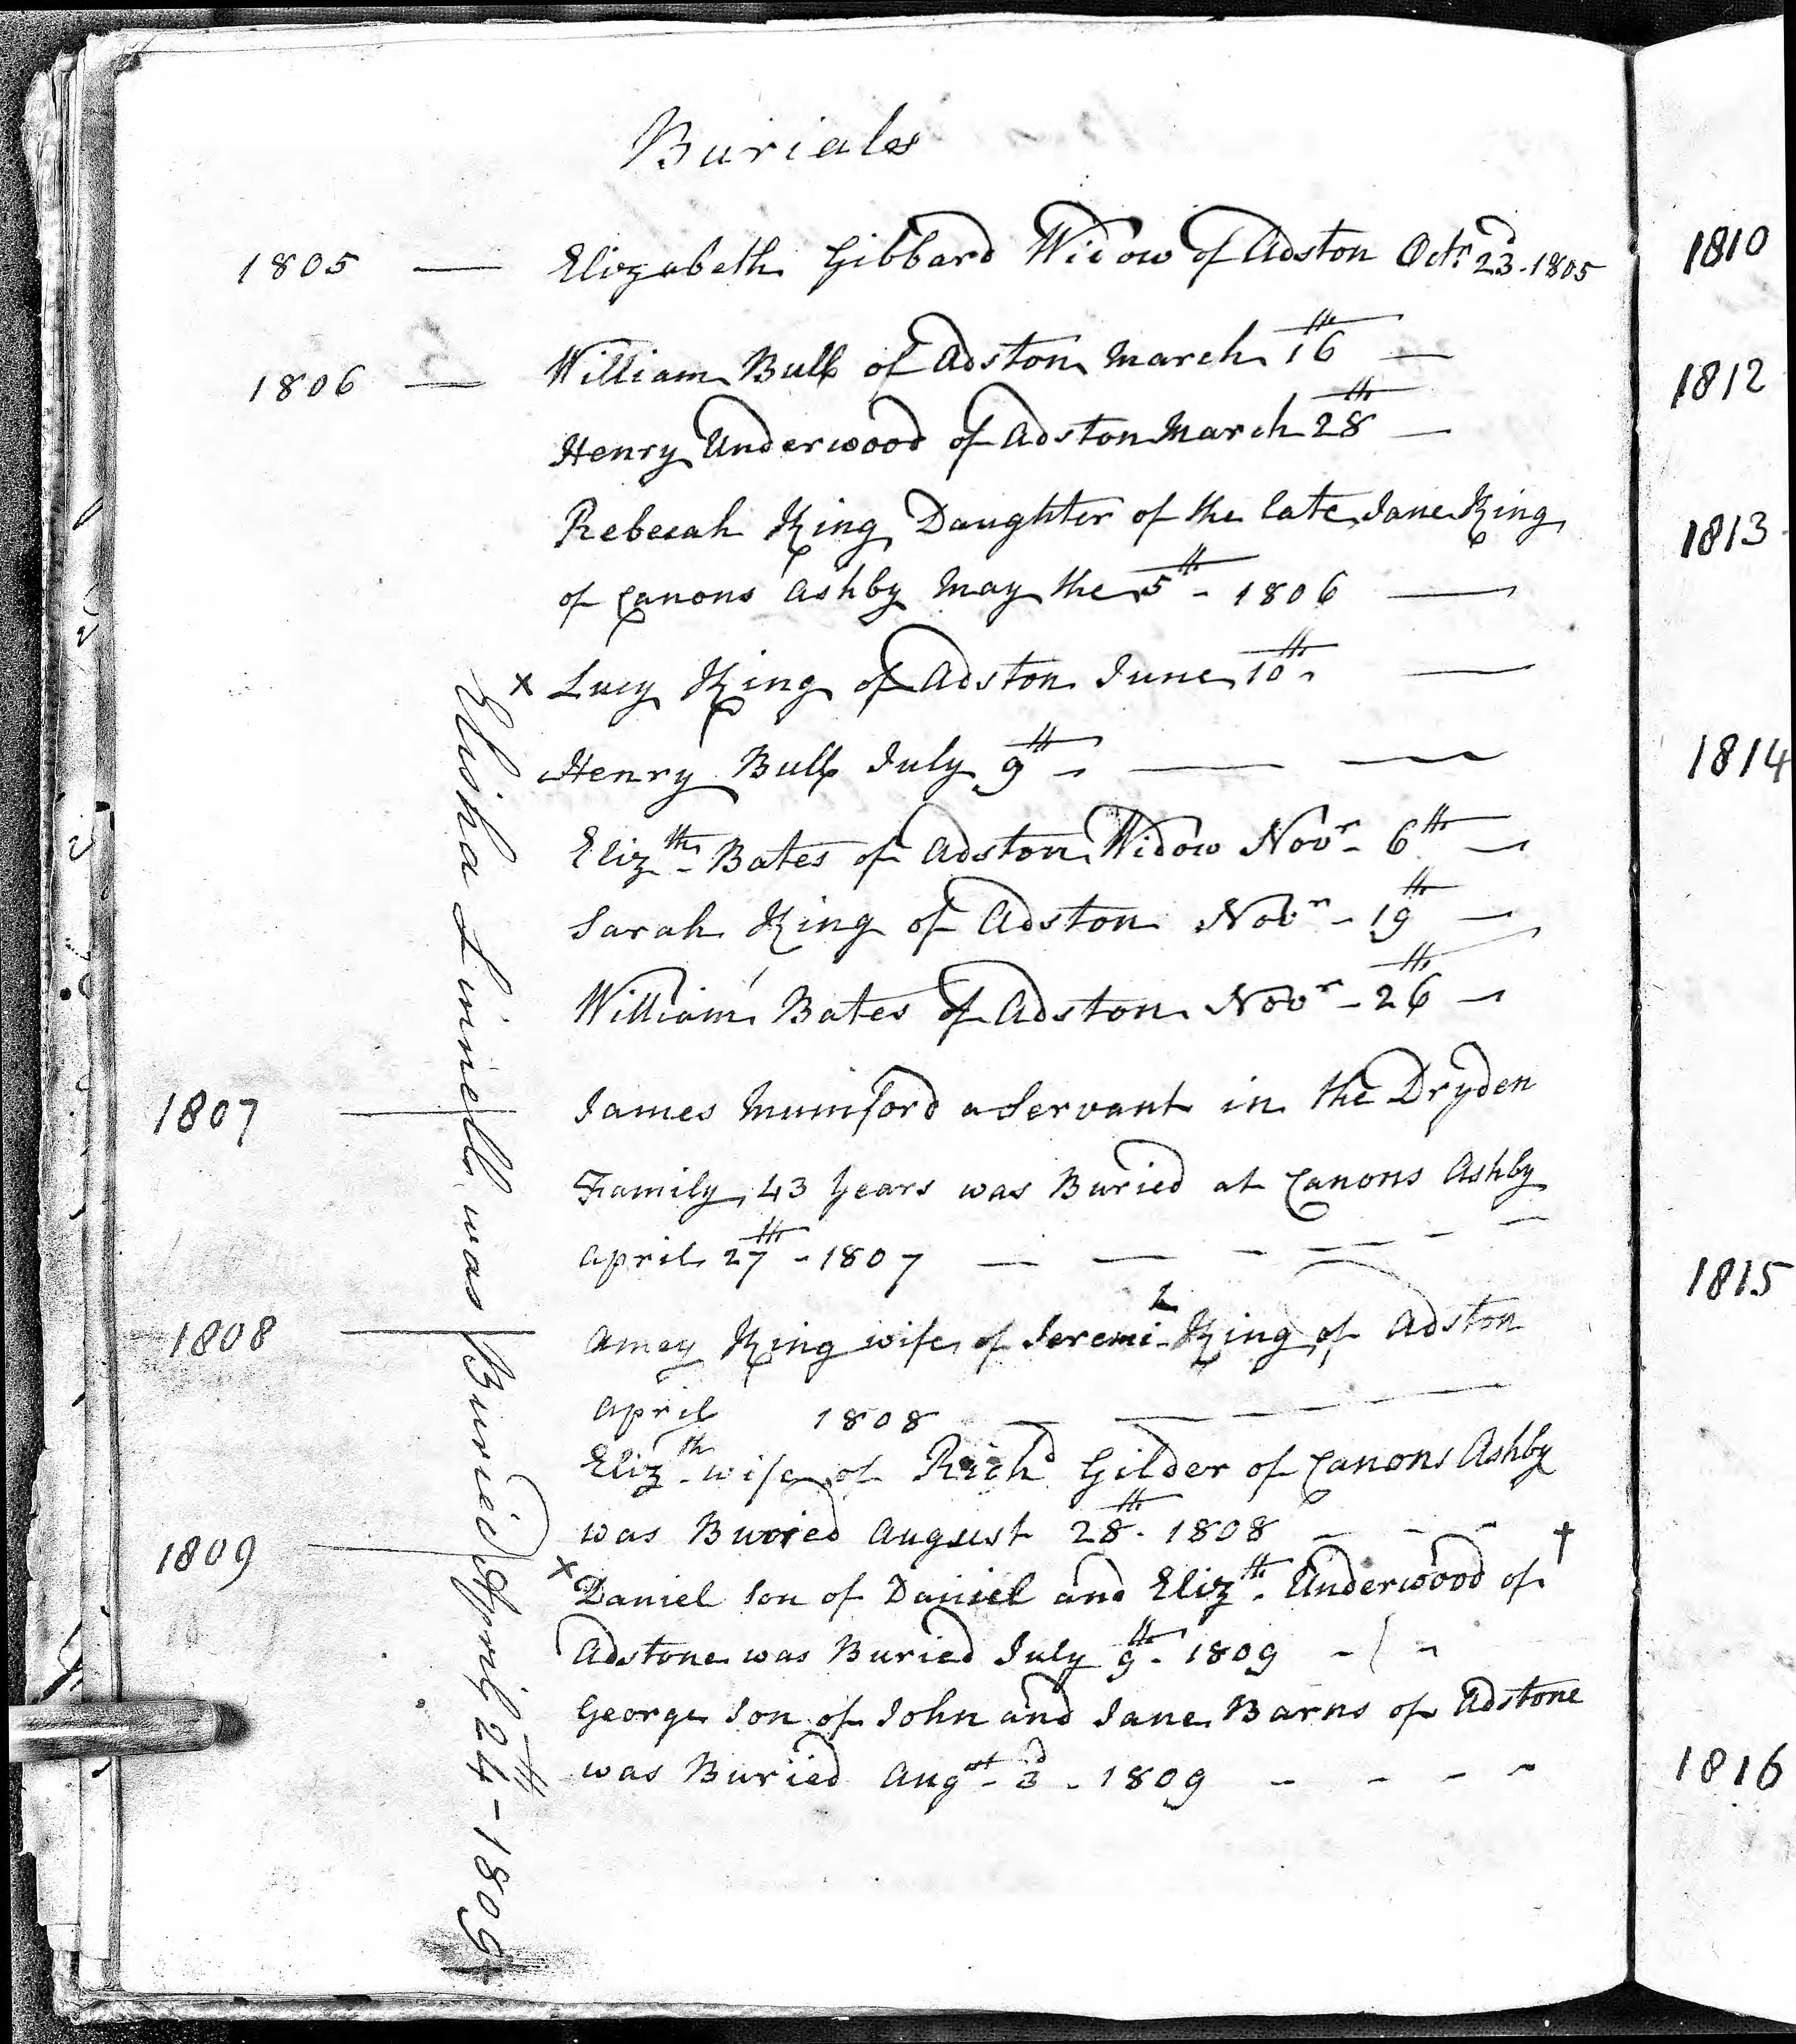 Buriales
1805 — Elizabeth Gibbard Widow of Adston Octr 23d - 1805
1806 — William Bull of Adston March 16th —
Henry Underwood of Adston March 28th —
Rebecah King Daughter of the late Jane King
of Canons Ashby May the 5th - 1806 —
x Lucy King of Adston June 10th —
Henry Bull July 9th - — —
Elizth - Bates of Adston Widow Novr - 6th —
Sarah King of Adston Novr - 19th —
William Bates of Adston Novr - 26th —
1807 — James Mumford a Servant in the Dryden
Family, 43 Years was Buried at Canons Ashby
April 27th - 1807 — — - - - - -
1808 — Amey King wife of Jeremi- King of Adston
April 1808 — — - - -
Elizth - wife of Richd Gilder of Canons Ashby
was Buried August 28th - 1808 - - -
1809 — x Daniel Son of Daniel and Elizth - Underwood of †
Adstone was Buried July 9th - 1809 - -
George Son of John and Jane Barns of Adstone
was Buried Augst - 3d - 1809 - - - -
Elisha Linnell was Buried April 24th - 1809
1810
1812
1813
1814
1815
1816